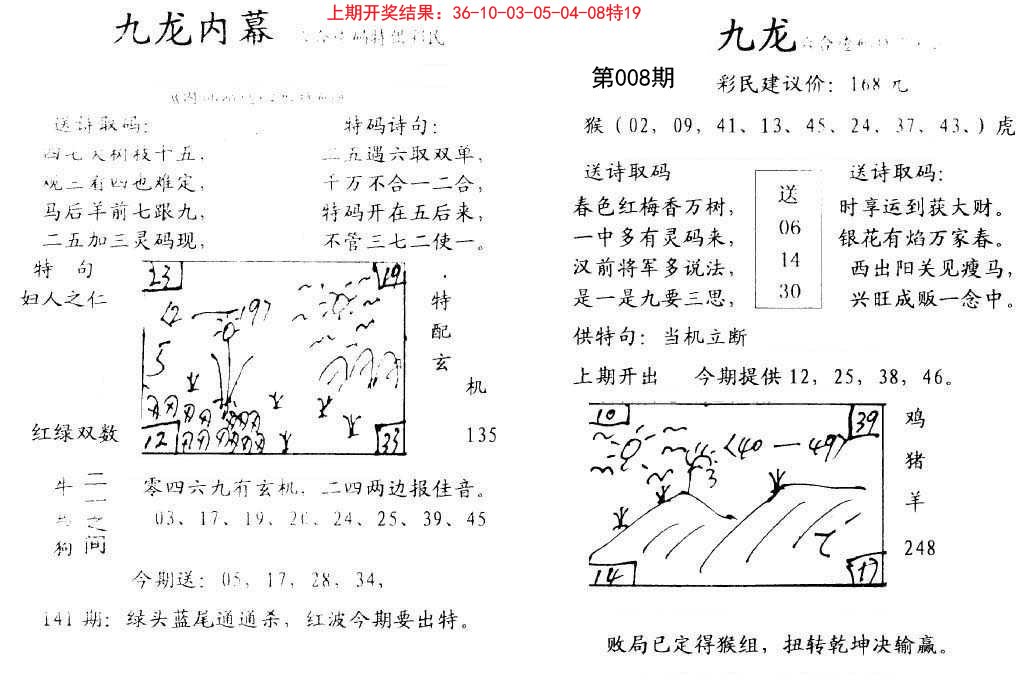 上期开奖结果：36-10-03-05-04-08特19
九龙内幕
送诗取码：
四七天树枝十五，
观三有四也难定，
马后羊前七跟九，
二五加三灵码现，
特码诗句：
五遇六取双单，
千万不合一二合，
特码开在五后来，
不管三七二使一。
特 句
妇人之仁
红绿双数
23
19
12
33
5
特配玄机
135
牛
狗
二一之间
零四六九有玄机，二四两边报佳音。
03、17、19、20、24、25、39、45
今期送：05，17，28，34，
141期：绿头蓝尾通通杀，红波今期要出特。
九龙
第008期
彩民建议价：168元
猴（02，09，41、13、45、24、37、43、）虎
送诗取码
春色红梅香万树，
一中多有灵码来，
汉前将军多说法，
是一是九要三思，
送
06
14
30
送诗取码：
时享运到获大财。
银花有焰万家春。
西出阳关见瘦马，
兴旺成贩一念中。
供特句：当机立断
上期开出 今期提供12，25，38，46。
10
39
<40—49>
3
14
17
鸡
猪
羊
248
败局已定得猴组，扭转乾坤决输赢。